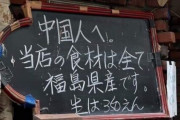 中国人へ。
当店の食材は全て
福島県産です。
生は380えん